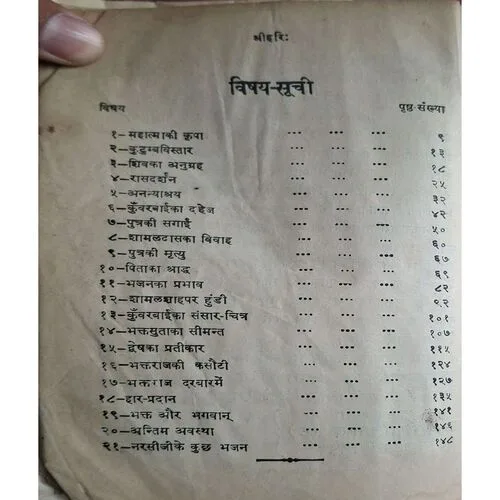 श्रीहरिः
विषय-सूची
विषय पृष्ठ-संख्या
१-महात्माकी कृपा ... ... ... ९
२-कुटुम्बविस्तार ... ... ... १३
३-शिवका अनुग्रह ... ... ... १८
४-रासदर्शन ... ... ... २५
५-अनन्याश्रय ... ... ... ३२
६-कुँवरबाईका दहेज ... ... ... ४२
७-पुत्रकी सगाई ... ... ... ५०
८-शामलदासका विवाह ... ... ... ६०
९-पुत्रकी मृत्यु ... ... ... ६७
१०-पिताका श्राद्ध ... ... ... ६९
११-भजनका प्रभाव ... ... ... ८२
१२-शामलशाहपर हुंडी ... ... ... ९२
१३-कुँवरबाईका संसार-चित्र ... ... ... १०१
१४-भक्तसुताका सीमन्त ... ... ... १०७
१५-द्वेषका प्रतीकार ... ... ... ११५
१६-भक्तराजकी कसौटी ... ... ... १२४
१७-भक्तराज दरबारमें ... ... ... १२७
१८-हार-प्रदान ... ... ... १३५
१९-भक्त और भगवान् ... ... ... १४१
२०-अन्तिम अवस्था ... ... ... १४६
२१-नरसीजीके कुछ भजन ... ... ... १४८